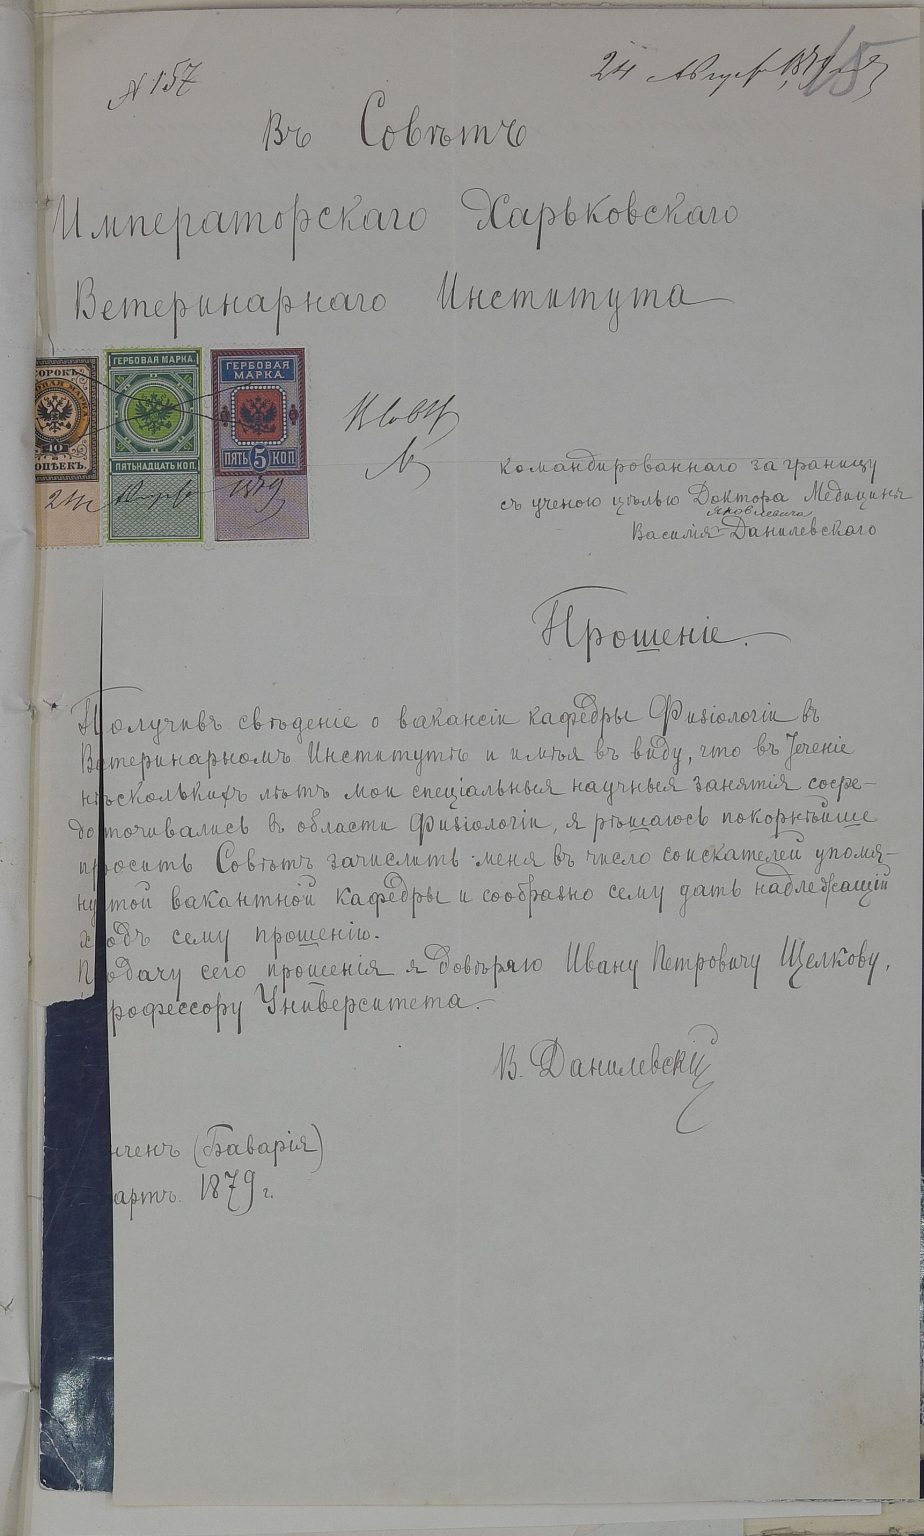 № 157
24 Августа 1879 года
15
Въ Совѣтъ
Императорскаго Харьковскаго
Ветеринарнаго Института
СОРОКЪ
ГЕРБОВАЯ МАРКА.
ГЕРБОВАЯ
МАРКА.
40
ПЯТЬ 5 КОП
ОПѢЕКЪ.
ПЯТЬНАДЦАТЬ КОП.
24 Августа 1879
командированнаго за границу
съ ученою цѣлью Доктора Медицины
Яковлевича
Василія Данилевскаго
Прошеніе.
Получивъ свѣденіе о вакансіи кафедры Физіологіи въ
Ветеринарномъ Институтѣ и имѣя въ виду, что въ теченіе
нѣсколькихъ лѣтъ мои спеціальныя научныя занятія сосре-
доточивались въ области Физіологіи, я рѣшаюсь покорнѣйше
просить Совѣтъ зачислить меня въ число соискателей упомя-
нутой вакантной кафедры и сообразно сему дать надлежащій
ходъ сему прошенію.
Подачу сего прошенія я довѣряю Ивану Петровичу Щелкову,
рофессору Университета.
В. Данилевскій
нченъ (Баварія)
артъ. 1879 г.